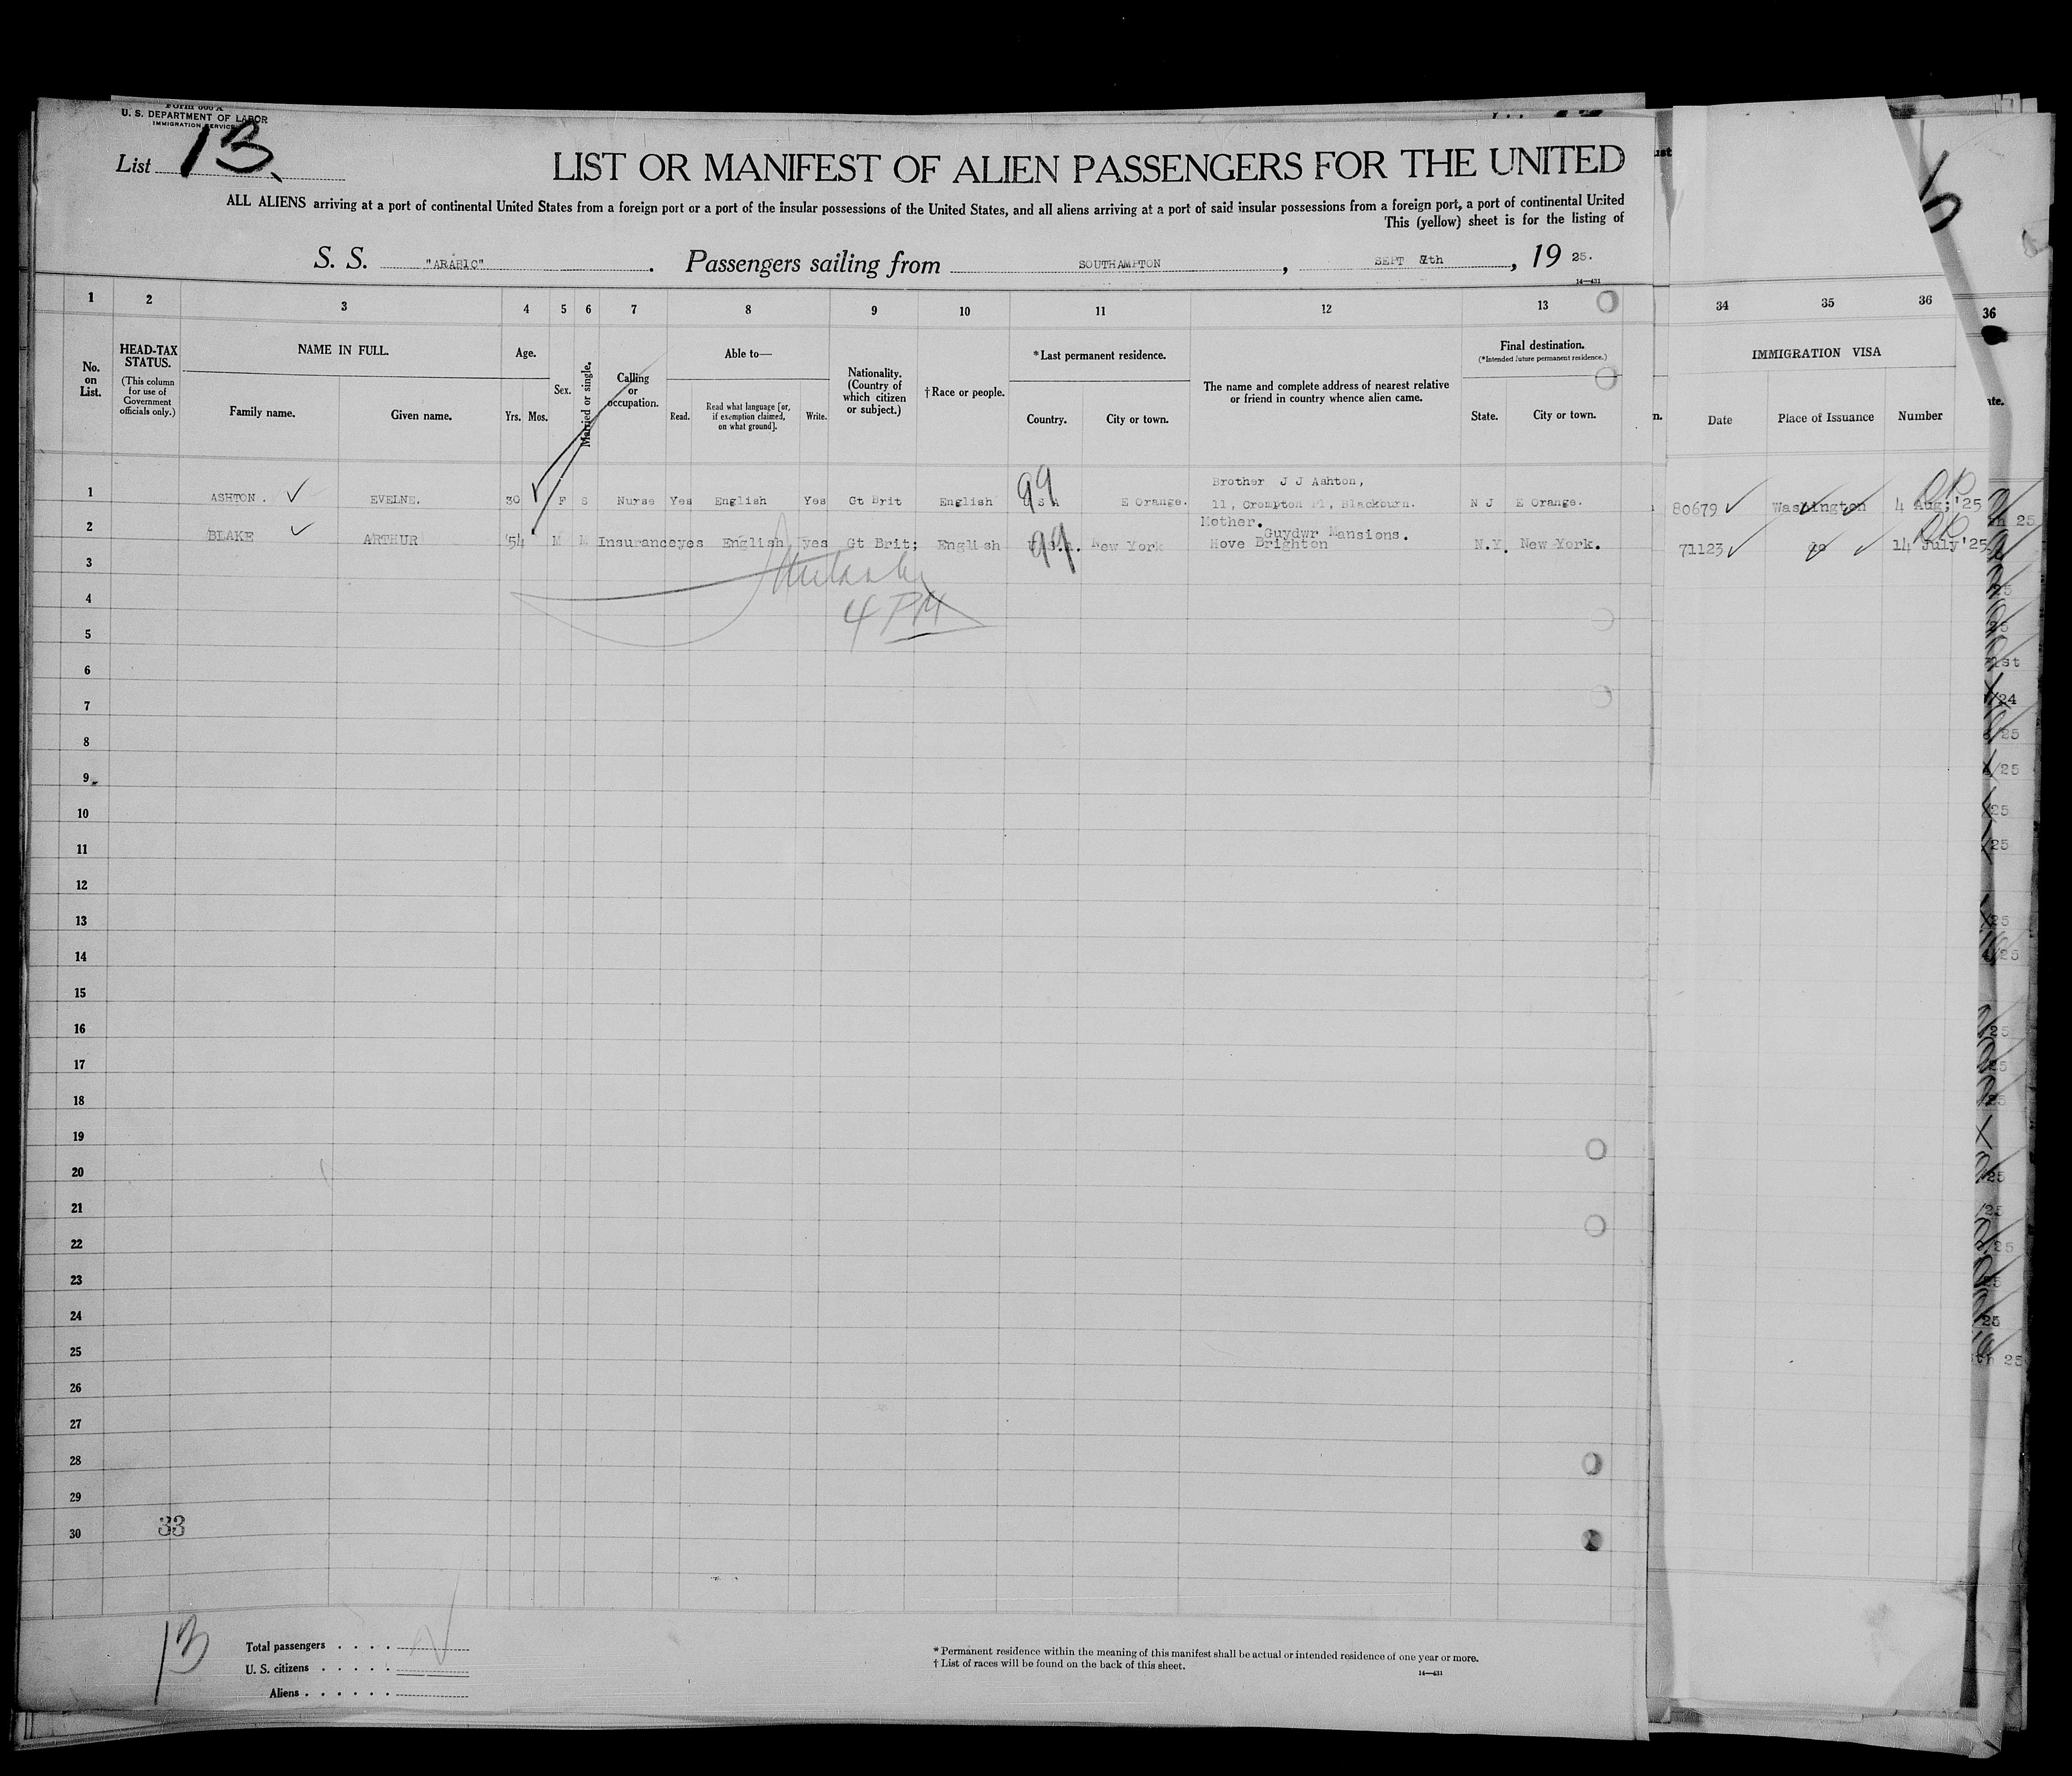 Form 500 A
U. S. DEPARTMENT OF LABOR
IMMIGRATION SERVICE
List 13.
LIST OR MANIFEST OF ALIEN PASSENGERS FOR THE UNITED
ALL ALIENS arriving at a port of continental United States from a foreign port or a port of the insular possessions of the United States, and all aliens arriving at a port of said insular possessions from a foreign port, a port of continental United
This (yellow) sheet is for the listing of
S. S. "ARABIC". Passengers sailing from SOUTHAMPTON, SEPT 7th, 19 25.
14—431
1 2 3 4 5 6 7 8 9 10 11 12 13 34 35 36 36
No. on List.
HEAD-TAX STATUS.
(This column for use of Government officials only.)
NAME IN FULL.
Family name. Given name.
Age.
Yrs. Mos.
Sex.
Married or single.
Calling or occupation.
Able to—
Read. Read what language [or, if exemption claimed, on what ground]. Write.
Nationality. (Country of which citizen or subject.)
†Race or people.
*Last permanent residence.
Country. City or town.
The name and complete address of nearest relative or friend in country whence alien came.
Final destination.
(*Intended future permanent residence.)
State. City or town.
IMMIGRATION VISA
Date Place of Issuance Number
1 ASHTON. ✓ EVELNE. 30 F S Nurse Yes English Yes Gt Brit English 99 U S A E Orange. Brother J J Ashton, 11, Crompton Pl, Blackburn. N J E Orange. 80679 ✓ Washington 4 Aug; '25
2 BLAKE ✓ ARTHUR 54 M M Insurance yes English yes Gt Brit; English 99 U.S.A. New York Mother. Guydwr Mansions. Hove Brighton N.Y. New York. 71123 ✓ do ✓ 14 July '25
3
4 4 PM
5
6
7
8
9
10
11
12
13
14
15
16
17
18
19
20
21
22
23
24
25
26
27
28
29
30 33
13
Total passengers . . . .
U. S. citizens . . . . .
Aliens . . . . . .
*Permanent residence within the meaning of this manifest shall be actual or intended residence of one year or more.
†List of races will be found on the back of this sheet.
14—431